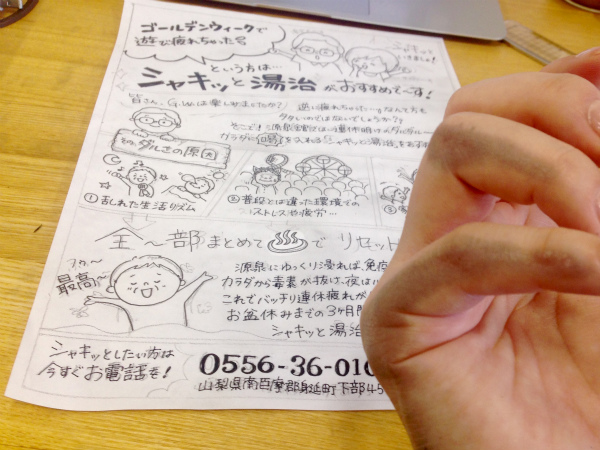 ゴールデンウィークで
遊び疲れちゃった号
という方は…
シャキッと湯治がおすすめで〜す!
皆さん、G.Wは楽しめましたか? 逆に疲れちゃった…なんて方も
多いのではないでしょうか??
そこで! 源泉館では
カラダに
を入れれる「シャキッと湯治」を
そのダルさの原因
①乱れた生活リズム
②普段とは違った環境での
ストレスや疲労…
全〜部まとめて♨でリセット
最高〜
源泉にゆっくり浸れば、免疫
カラダから毒素が抜け、夜は
これでバッチリ連休疲れが
お盆休みまでの3ヶ月間
シャキッと湯治
シャキッとしたい方は
今すぐお電話も!
0556-36-010
山梨県南巨摩郡身延町下部45